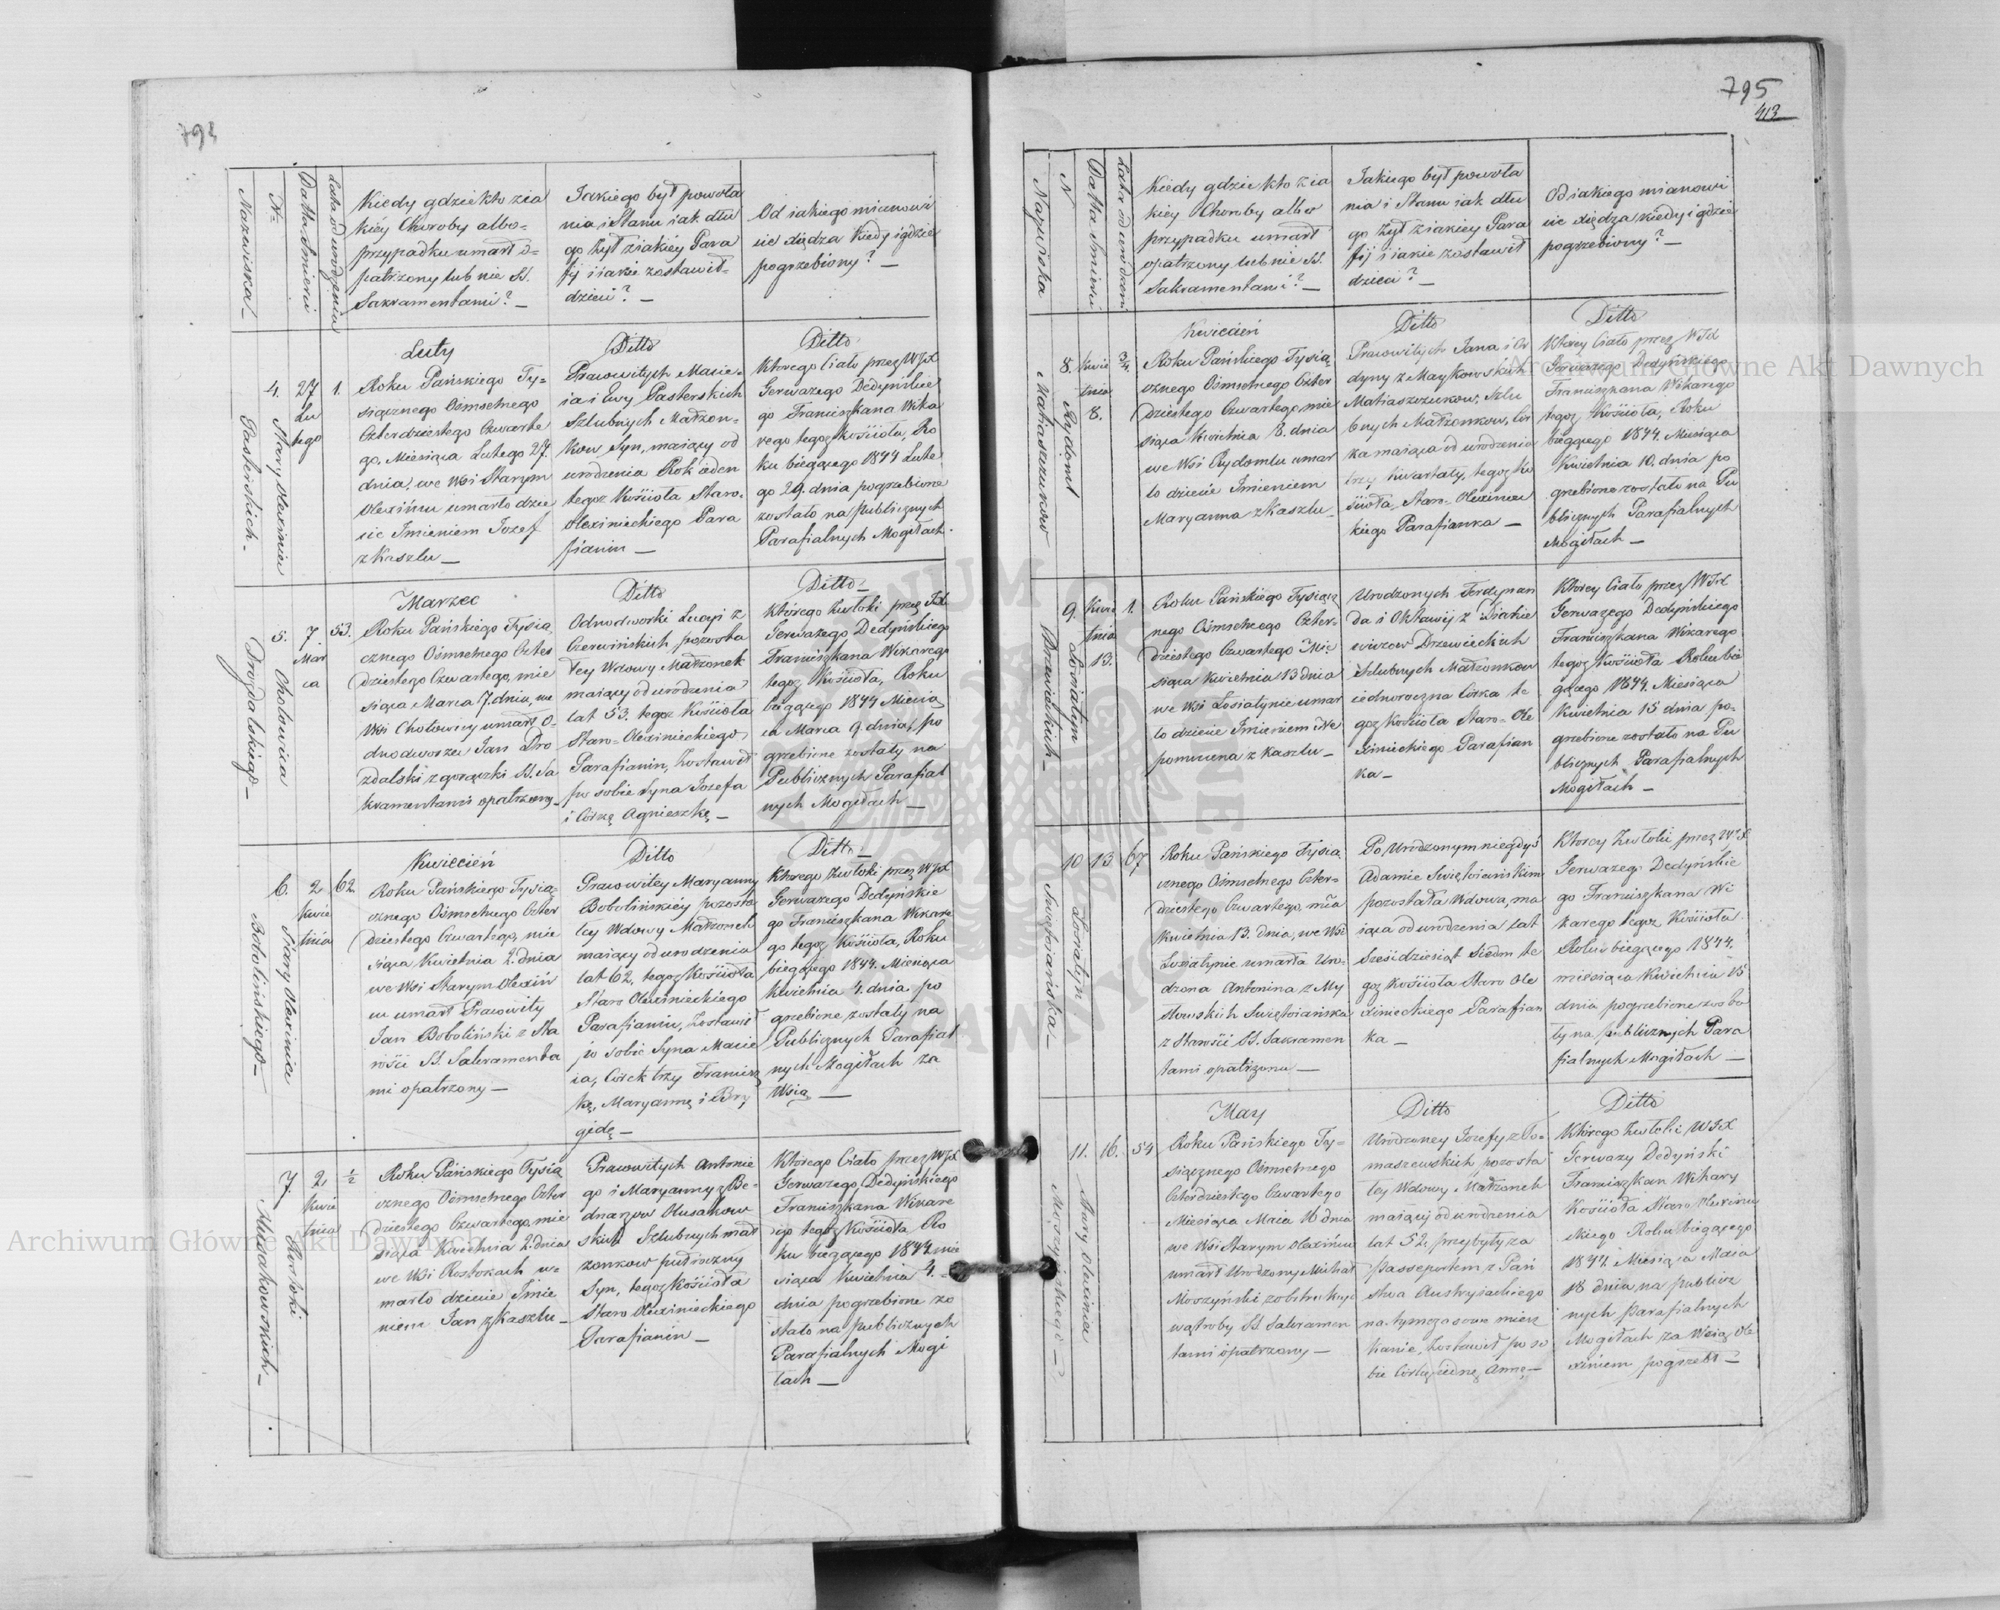 Nazewiska
Nr
Datta Śmierci
Lata od urodzenia
Kiedy gdzie kto zia
kiéy Choroby albo
przypadku umarł o-
patrzony lub nie SS.
Sakramentami? —
Jakiego był powoła
nia i Stanu iak dłu
go żył z iakiey Para
fij i iakie zostawił
dzieci? —
Od iakiego mianowi
cie xiędza kiedy i gdzie
pogrzebiony? —
4. Stary Olexiniec
Pasterskich
27
Lu
tego
1.
Luty
Roku Pańskiego Ty-
siącznego Ośmsetnego
Czterdziestego Czwarte
go, Miesiąca Lutego 27.
dnia, we Wsi Starym
Olexińcu umarło dzie
cie Imieniem Jozef
z Kaszlu —
Ditto
Prawowitych Macie-
ia i Ewy Pasterskich
Szlubnych Małżon-
kow Syn, maiący od
urodzenia Rok ieden
tegoż Kościoła Staro-
Olexinieckiego Para
fianin —
Ditto
Ktorego Ciało przez WJX
Gerwazego Dedyńskie
go Franciszkana Wika
rego tegoż Kościoła, Ro
ku bieżącego 1844 Lute
go 29. dnia pogrzebione
zostało na publicznych
Parafialnych Mogiłach.
5. Chotowica
Drozdalskiego —
7
Mar
ca
53.
Marzec
Roku Pańskiego Tysią
cznego Ośmsetnego Czter
dziestego Czwartego, mie
siąca Marca 7. dnia, we
Wsi Chotowicy umarł o-
dnodworzec Jan Dro
zdalski z gorączki SS. Sa
kramentami opatrzony —
Ditto
Odnodworki Lucyi z
Czerwińskich pozosta
łey Wdowy Małżonek
maiący od urodzenia
lat 53. tegoż Kościoła
Staro-Olexinieckiego
Parafianin, Zostawił
po sobie Syna Jozefa
i Córkę Agnieszkę, —
Ditto
Ktorego Zwłoki przez JX
Gerwazego Dedyńskiego
Franciszkana Wikarego
tegoż Kościoła, Roku
bieżącego 1844 Miesią
ca Marca 9. dnia, po
grzebione zostały na
Publicznych Parafial
nych Mogiłach —
6. Stary Olexiniec
Bobolińskiego —
2
Kwie
tnia
62
Kwiecień
Roku Pańskiego Tysią-
cznego Ośmsetnego Czter
dziestego Czwartego, mie
siąca Kwietnia 2. dnia
we Wsi Starym Olexiń
cu umarł Prawowity
Jan Boboliński z Sta
rości SS. Sakramenta
mi opatrzony —
Ditto
Prawowitey Maryanny
Bobolińskiéy pozosta
łey Wdowy Małżonek
maiący od urodzenia
lat 62, tegoż Kościoła
Staro Olexinieckiego
Parafianin, Zostawił
po sobie Syna Macie
ia, Córek trzy Francisz
kę, Maryannę i Bry
gidę —
Ditto —
Ktorego Zwłoki przez WJX
Gerwazego Dedyńskie
go Franciszkana Wikare
go tegoż Kościoła, Roku
bieżącego 1844. Miesiąca
Kwietnia 4. dnia po
grzebione zostały na
Publicznych Parafial
nych Mogiłach za
Wsią —
7 Roztoki
Musakowskich —
2.
Kwie
tnia
½
Roku Pańskiego Tysią
cznego Ośmsetnego Czter
dziestego Czwartego, mie
siąca Kwietnia 2. dnia
we Wsi Roztokach u-
marło dziecie Imie
niem Jan z Kaszlu —
Prawowitych Antonie
go i Maryanny z Be-
dnarzow Musakow
skich Szlubnych mał
żonkow pułroczny
Syn, tegoż Kościoła
Staro Olexinieckiego
Parafianin —
Ktorego Ciało przez WJX
Gerwazego Dedyńskiego
Franciszkana Wikare
go tegoż Kościoła Ro
ku bieżącego 1844 mie
siąca Kwietnia 4. –
dnia pogrzebione zo
stało na publicznych
Parafialnych Mogi
łach —
795
413
Nazwiska
N.
Datta Śmierci
Lata od urodzeni
Kiedy gdzie kto z ia
kiey Choroby albo
przypadku umarł
opatrzony lub nie SS.
Sakramentami? —
Jakiego był powoła
nia i Stanu iak dłu
go żył z iakiey Para
fij i iakie zostawił
dzieci? —
Od iakiego mianowi
cie xiędza kiedy i gdzie
pogrzebiony? —
8. Rydoml
Matiaszczukow
Kwie
tnia
8.
3/4
Kwiecień
Roku Pańskiego Tysią
cznego Ośmsetnego Czter
dziestego Czwartego mie
siąca Kwietnia 8. dnia
we Wsi Rydomlu umar
ło dziecie Imieniem
Maryanna z Kaszlu —
Ditto
Prawowitych Jana i
dyny z Maykowskich
Matiaszczukow, Szlu
bnych Małżonkow, Cór
ka maiąca od urodzenia
trzy kwartały, tegoż Ko
ścioła, Staro-Olexiniec
kiego Parafianka —
Ditto
Ktorey Ciało przez WJX
Gerwazego Dedyńskiego
Franciszkana Wikarego
tegoż Kościoła, Roku
bieżącego 1844. Miesiąca
Kwietnia 10. dnia po
grzebione zostało na Pu
blicznych Parafialnych
Mogiłach —
9. Łosiatyn
Drzewieckich —
Kwie
tnia
13.
1.
Roku Pańskiego Tysiącz
nego Ośmsetnego Czter-
dziestego Czwartego Mie
siąca Kwietnia 13 dnia
we Wsi Łosiatynie umar
ło dziecie Imieniem Ne
pomucena z Kaszlu —
Urodzonych Ferdynan
da i Oktawij z
Drzewieckich
Szlubnych Małżonkow
iednoroczna Córka te
goż Kościoła Staro-Ole
xinieckiego Parafian
ka —
Ktorey Ciało przez WJX
Gerwazego Dedyńskiego
Franciszkana Wikarego
tegoż Kościoła Roku bie
żącego 1844. Miesiąca
Kwietnia 15 dnia po-
grzebione zostało na Pu
blicznych Parafialnych
Mogiłach —
10 Łosiatyn
Swiętosiańska —
13
67
Roku Pańskiego Tysią
cznego Ośmsetnego Czter-
dziestego Czwartego, mca
Kwietnia 13. dnia, we Wsi
Łosiatynie umarła Uro-
dzona Antonina z My
słowskich Swiętosiańska
z Starości SS. Sakramen
tami opatrzona —
Po Urodzonym niegdyś
Adamie Swiętosiańskim
pozostała Wdowa, ma
iąca od urodzenia Lat
Sześćdziesiąt Siedm te
goż Kościoła Staro Ole
xinieckiego Parafian
ka —
Ktorey Zwłoki przez WJX
Gerwazego Dedyńskie
go Franciszkana Wi
karego tegoż Kościoła
Roku bieżącego 1844.
miesiąca Kwietnia 15
dnia pogrzebione zosta
ły na publicznych Para
fialnych Mogiłach —
11. Stary Olexiniec
Moszyńskiego —
16.
54
May
Roku Pańskiego Ty-
siącznego Ośmsetnego
Czterdziestego Czwartego
Miesiąca Maia 16 dnia
we Wsi Starym Olexińcu
umarł Urodzony Michał
Moszyński z obstrukcyi
wątroby SS Sakramen
tami opatrzony —
Ditto
Urodzoney Jozefy z To-
maszewskich pozosta
łey Wdowy Małżonek
maiący od urodzenia
lat 52, przybyły za
passeportem z Pań
stwa Austryiackiego
na tymczasowe miesz
kanie, Zostawił po so
bie Córkę iednę Annę —
Ditto
Ktorego Zwłoki WJX
Gerwazy Dedyński
Franciszkan Wikary
Kościoła Staro Olexiniec
kiego Roku bieżącego
1844. Miesiąca Maia
18 dnia na publicz
nych parafialnych
Mogiłach za Wsią Ole
xińcem pogrzebł —
Archiwum Główne Akt Dawnych
Archiwum Główne Akt Dawnych